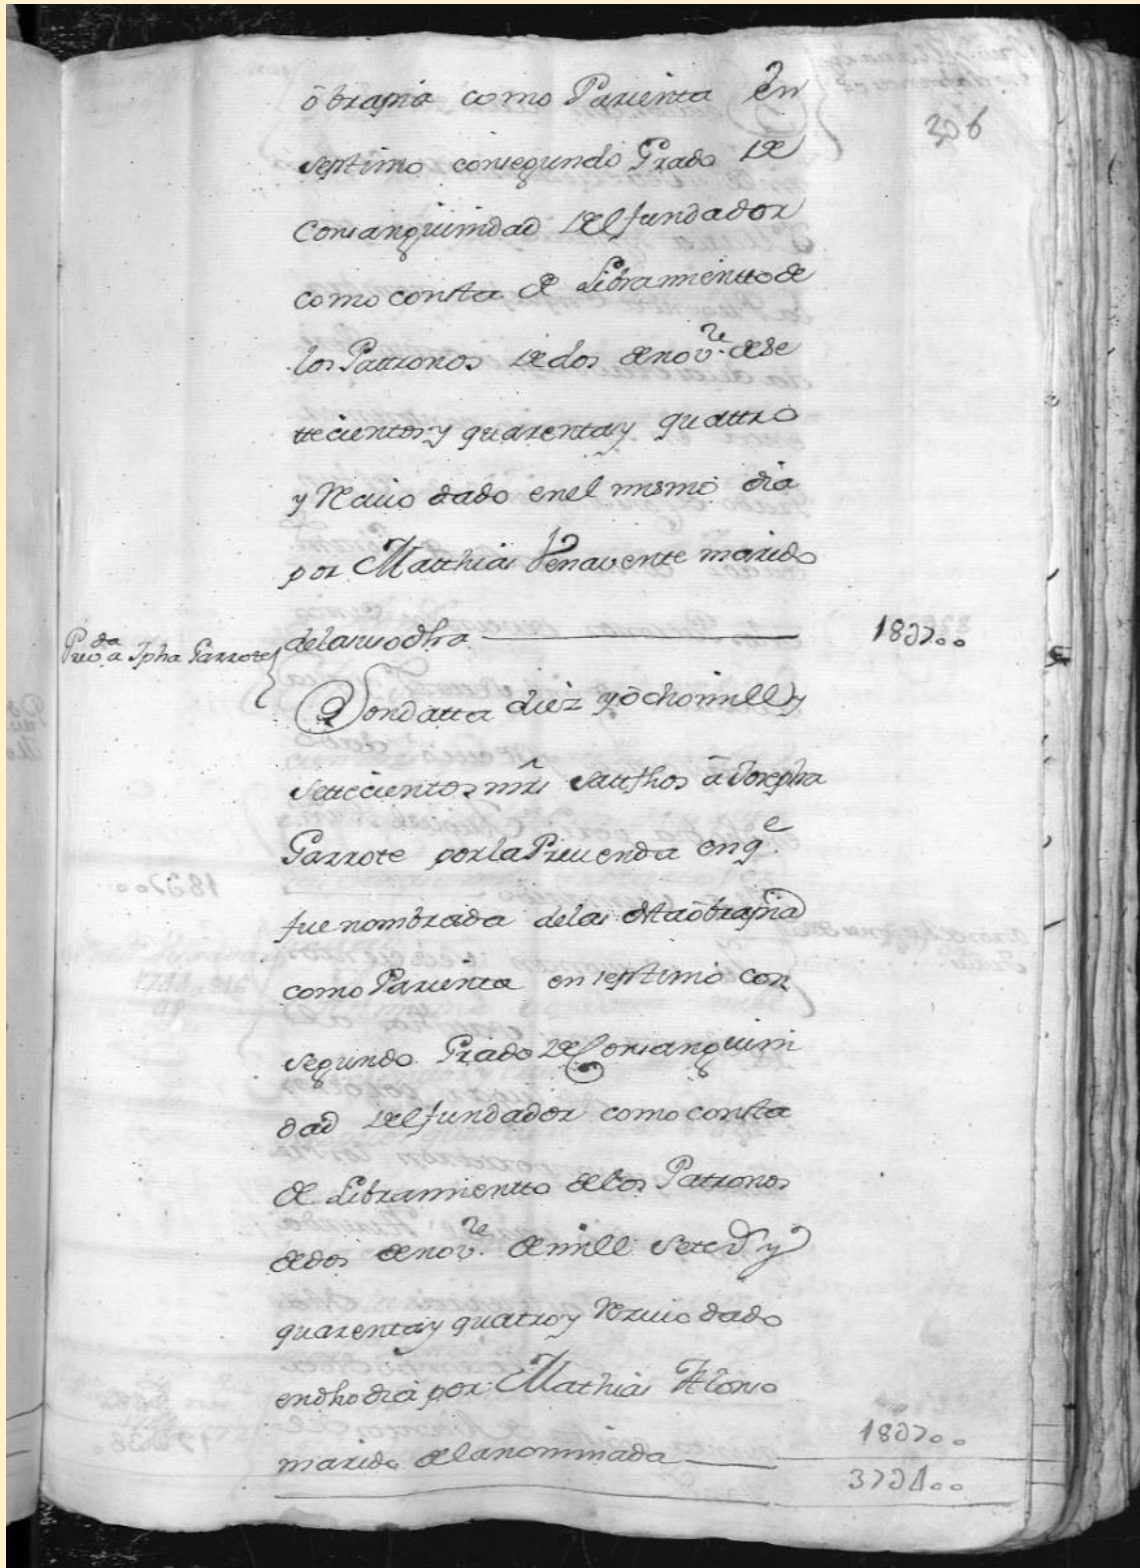 306
óbrapia como Parienta en
septimo consegundo Grado de
Consanguinidad del fundador
como consta de Libramientto de
los Pattronos de dos de nov.re de se
ttecientos y quarenta y quattro
y Reciuo dado en el mismo dia
por Matthias Venavente marido
de la suso dha. 18U700
Preu.da a Jpha Garrote
Son datta diez y ócho mill y
Settecientos mrs sattfhos á Josepha
Garrote por la Preuenda en q.e
fue nombrada de las dhta óbrapia
como Parienta en septimo con
segundo Grado de Consanguini
dad del fundador como consta
de Libramientto de los Patronos
de dos de nov.re de mill Setecs. y
quarenta y quatro y Reciuo dado
en dho dia por Mathias Alonso
marido de la nominada 18U700
37U400